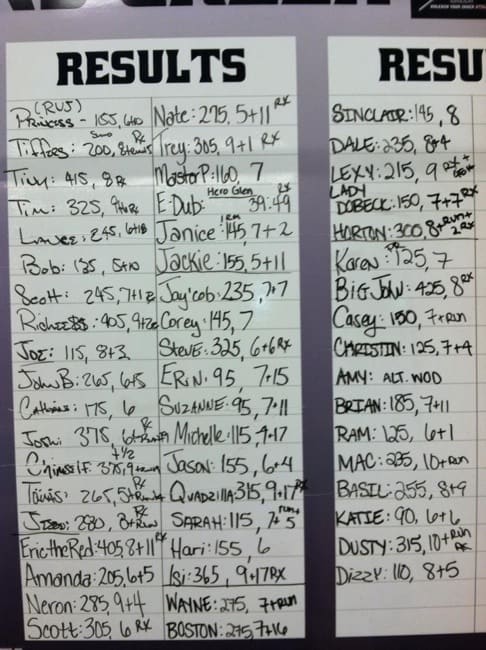 RESULTS
(RUJ)
Princess - 155, 6+10
Tiffers: 200, 8+
Tim: 415, 8 RX
Tim: 325, 9+
Lance: 245, 6+18
Bob: 135, 5+10
Scott: 245, 7+12
405, 9+
JOE: 115, 8+3
John B: 265, 6+5
175, 6
Josh: 375,
375, 9+run
Travis: 265, 5+
280, 8+run
Eric the Red: 405, 8+11 RX
Amanda: 205, 6+5
Neron: 285, 9+4
Scott: 305, 6 RX
Nate: 275, 5+11 RX
Trey: 305, 9+1 RX
Master P: 160, 7
E-Dub: Hero Glen 39:49 RX
Janice: 1RM 145, 7+2
Jackie: 155, 5+11
Jay'cob: 235, 7+7
Corey: 145, 7
STEVE: 325, 6+6 RX
ERIN: 95, 7+15
SUZANNE: 95, 7+11
Michelle: 115, 7+17
JASON: 155, 6+4
QUADZILLA: 315, 9+17 RX
SARAH: 115, 7+run+5
Hari: 155, 6
Isi: 365, 9+17 RX
WAYNE: 275, 7+run
BOSTON: 275, 7+16
RESU
SINCLAIR: 145, 8
DALE: 235, 8+4
LEXY: 215, 9 RX+
LADY
DOBECK: 150, 7+7 RX
HORTON: 300, 8+RUN+2 RX
Karen: PR 125, 7
BIG JOHN: 425, 8 RX
Casey: 150, 7+run
CHRISTIN: 125, 7+4
AMY: ALT. WOD
BRIAN: 185, 7+11
RAM: 125, 6+1
MAC: 235, 10+Run
BASIL: 255, 8+9
KATIE: 90, 6+6
DUSTY: 315, 10+RUN RX
DIZZY: 110, 8+5